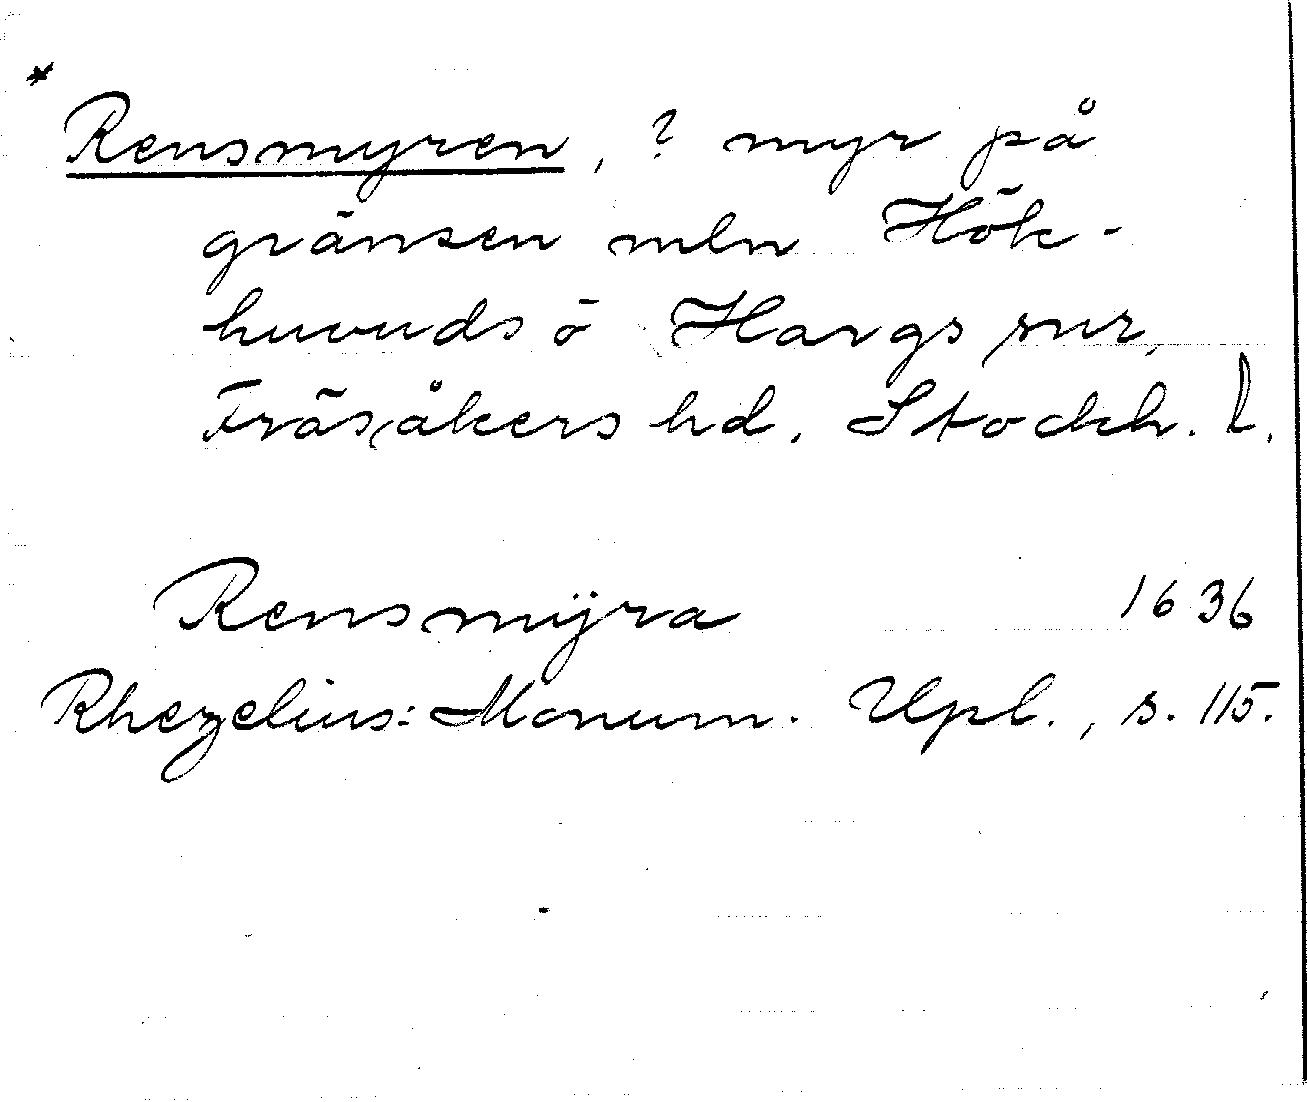 * Rensmyren, ? myr på
gränsen mln Hök-
huvuds o Hargs snr,
Frösåkers hd. Stockh. l.
Rensmÿra 1636
Rhezelius: Monum. Upl., s. 115.